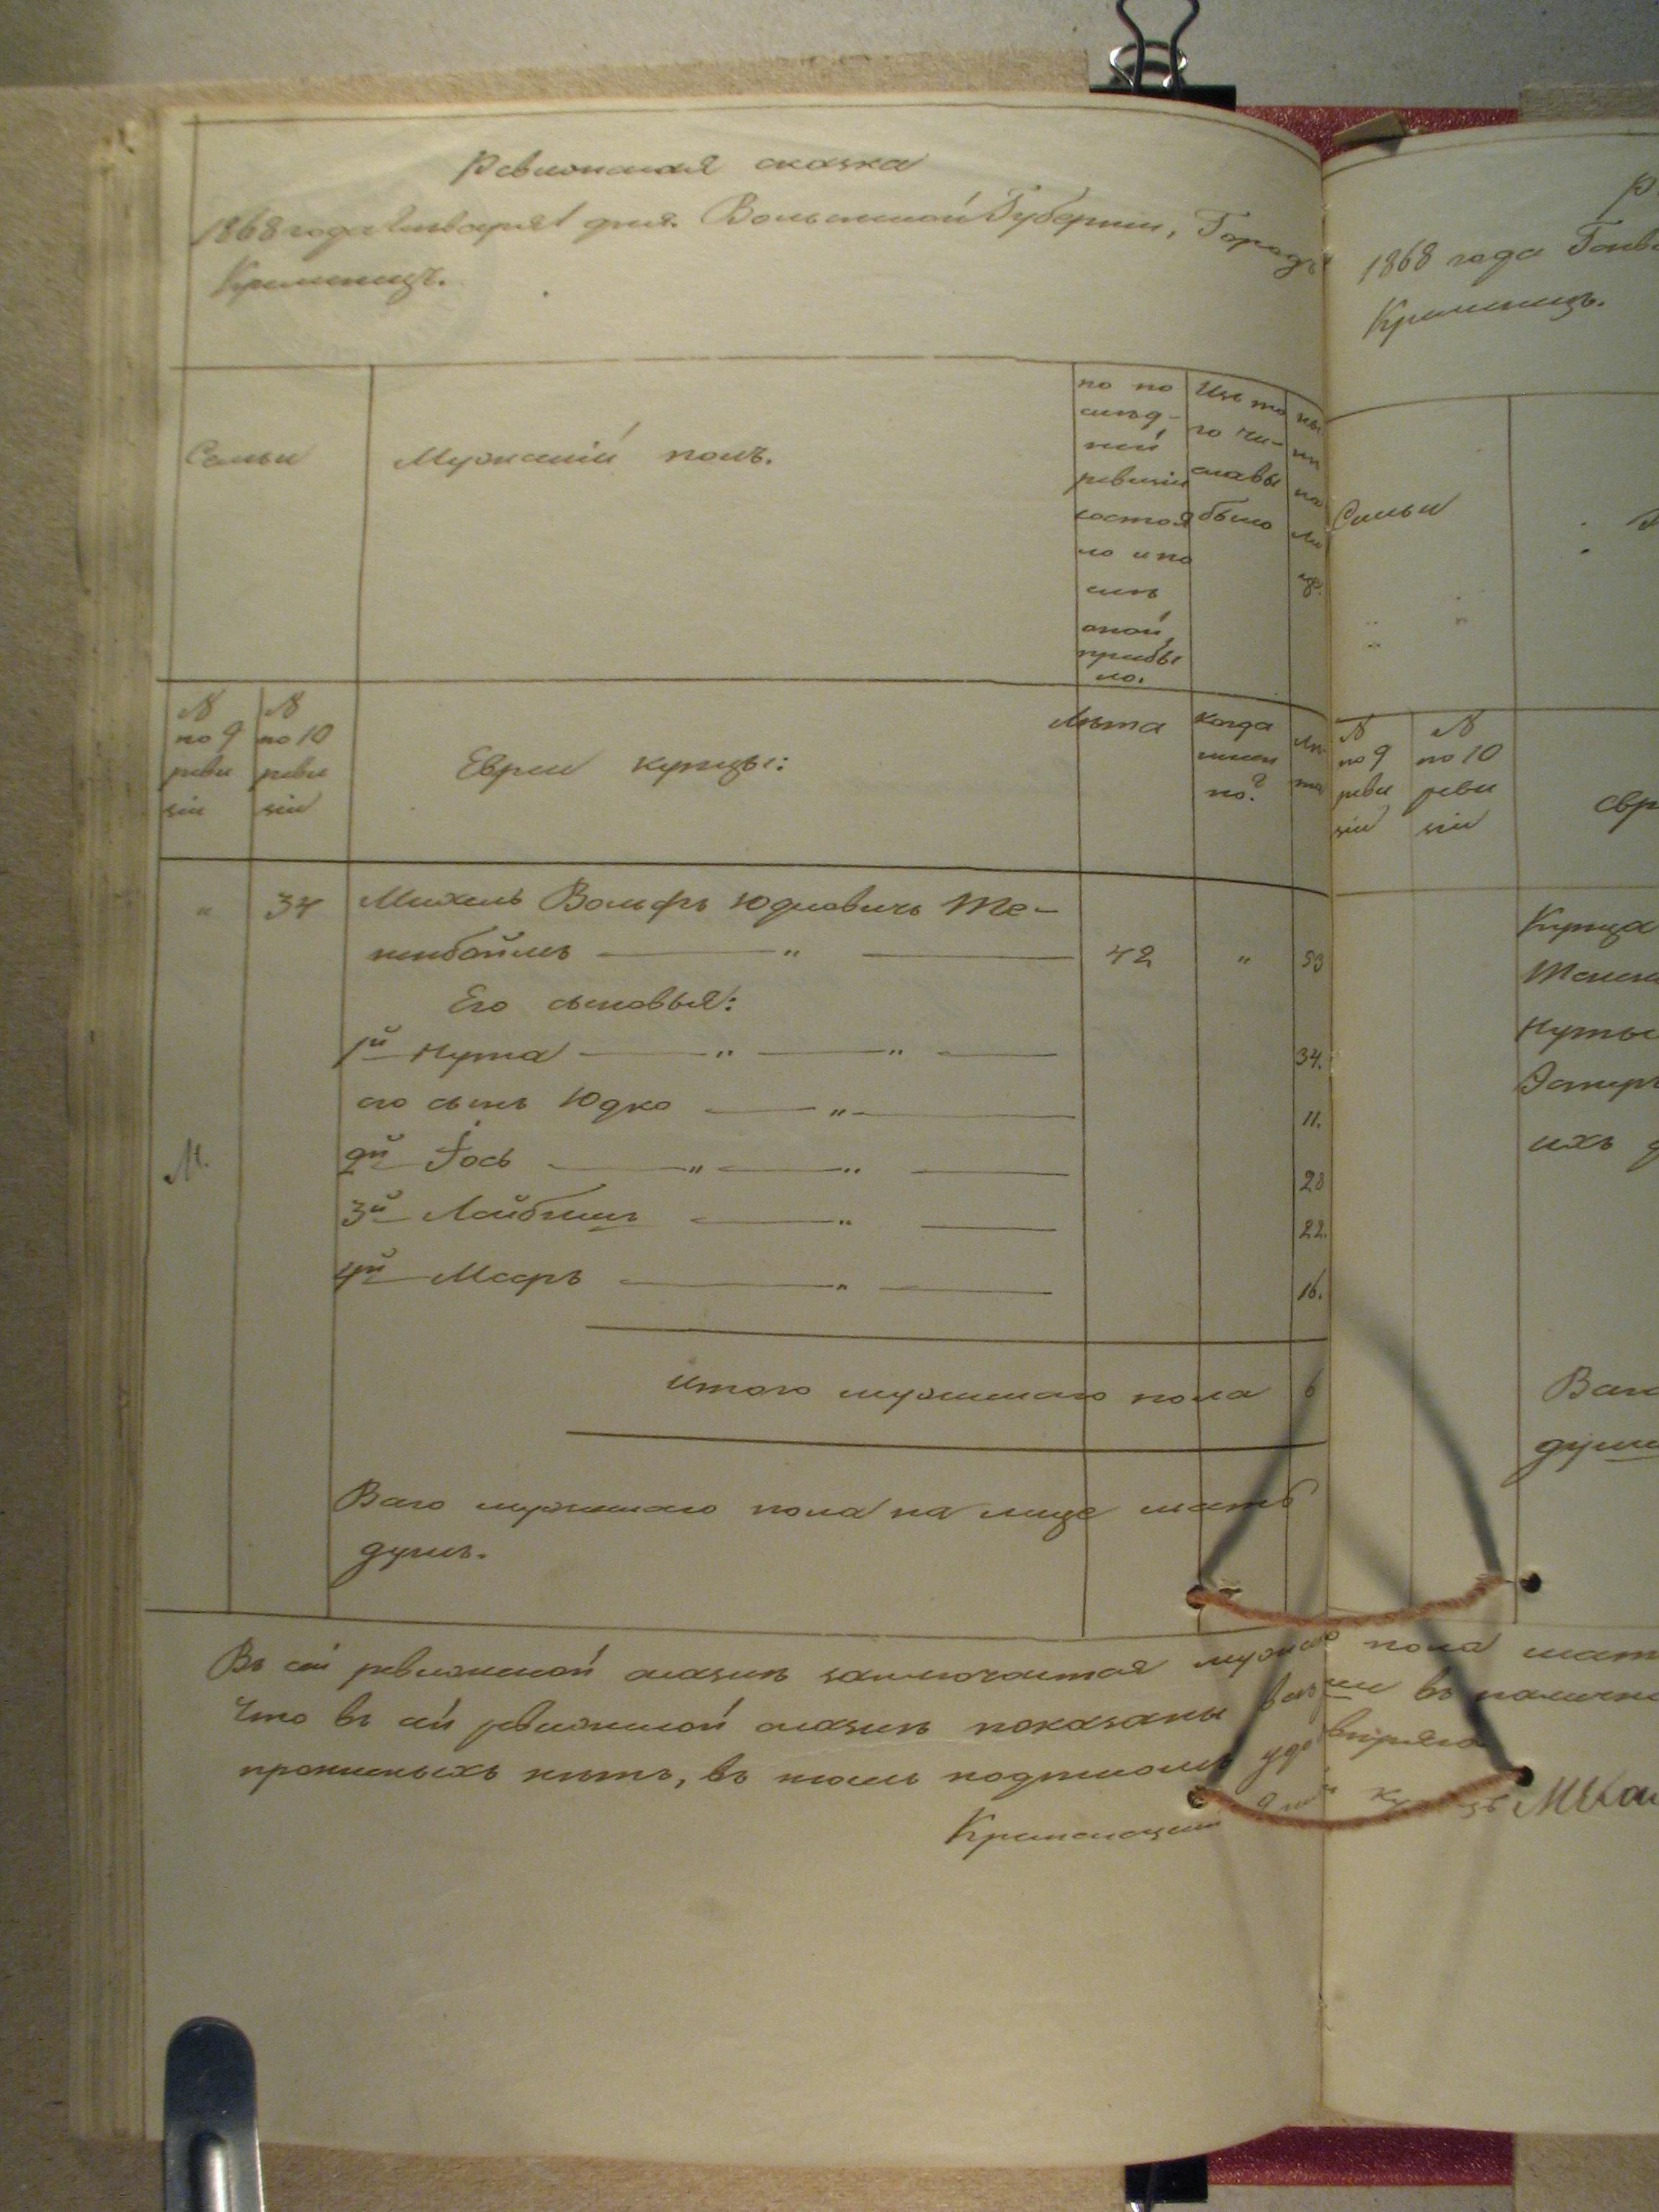 Ревизская сказка
1868 года Января 1 дня. Волынской Губернии, Городъ
Кременецъ.
Семьи
Мужескій полъ.
по по
слѣд-
ней
ревизіи
состоя
ло и по
слѣ
оной
прибы
ло.
Изъ то
го чи-
сла вы
было
ны
нѣ
на
ли
це.
№
по 9
реви
зіи
№
по 10
реви
зіи
Евреи купцы:
Лѣта
Когда
имен
но?
Лѣ
та
" 34 Михель Вольфъ Юдковичъ Те-
ненбоймъ — " — 42 " 53
Его сыновья:
1й Нута — " — " — 34.
его сынъ Юдко — " — 11.
2й Іось — " — " — 28
М.
3й Лейбишъ — " — 22.
4й Мееръ — " — 16.
Итого мужескаго пола 6
Всего мужескаго пола на лице шесть
душъ.
Въ сей ревизской сказкѣ заключается мужскаго пола шест
Что въ сей ревизской сказкѣ показаны всѣ въ налично
прописныхъ нѣтъ, въ томъ подписомъ удовѣряю
Кременецкій 2й Купецъ
1868 года Генва
Кременецъ.
Семьи
№
по 9
реви
зіи
№
по 10
реви
зіи
Евр
Купца
Тенен
Нуты
Эстеръ
ихъ д
Всего
душъ